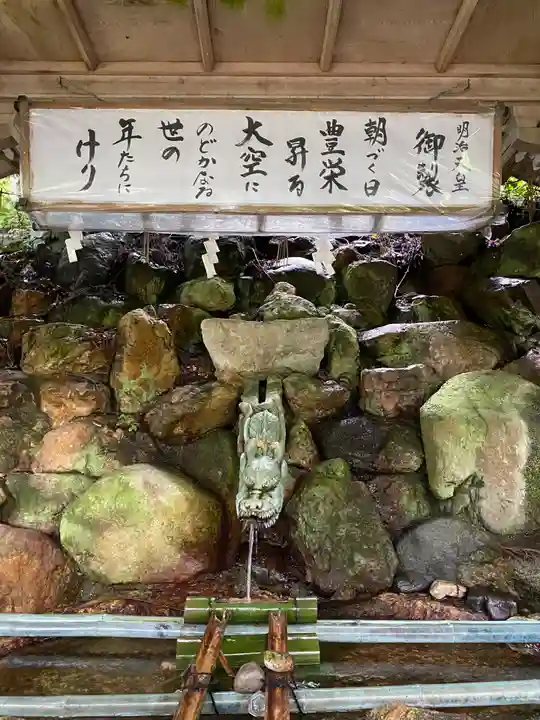 明治天皇
御製
朝づく日
豊栄
昇る
大空に
のどかなる
世の
年たちに
けり